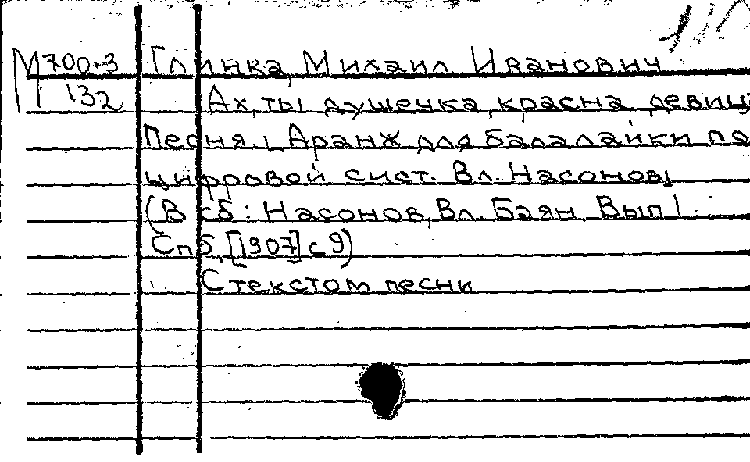 М700-3 Глинка, Михаил Иванович
132 Ах, ты душечка, красна девиц
Песня. Аранж для балалайки по
цифровой сист. Вл. Насонов
(В сб: Насонов, Вл. Баян Вып 1.
Спб, [1907] с 9)
С текстом песни